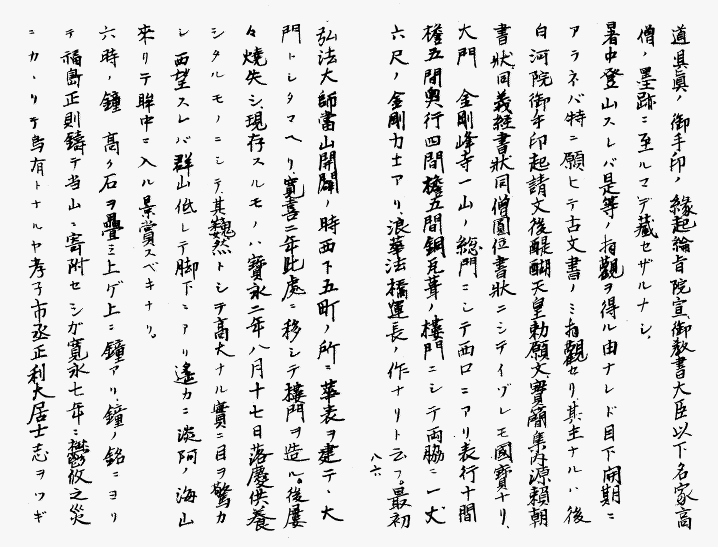 道具眞ノ御手印、縁起綸旨院宣御教書大臣以下名家高
僧ノ墨跡ニ至ルマデ蔵セザルナシ、
暑中登山スレバ是等ノ拍觀ヲ得ル由ナレド目下開期ニ
アラネバ特ニ願ヒテ古文書ノミ拍觀セリ其主ナルハ後
白河院御手印起請文後醍醐天皇勅願文寶簡集内源頼朝
書状同義経書状同僧圓位書状ニシテイヅレモ國寶ナリ、
大門 金剛峰寺一山ノ総門ニシテ西口ニアリ表行十間
檐五間奥行四間檐五間銅瓦葺ノ樓門ニシテ両脇ニ一丈
六尺ノ金剛力士アリ、浪華法橋運長ノ作ナリト云フ。最初
八六
弘法大師当山開闢ノ時西下五町ノ所ニ華表ヲ建テ、大
門トシタマヘリ、寛喜二年此處ニ移シテ樓門ヲ造ル。後屡
々燒失シ、現存スルモノハ寶永二年八月十七日落慶供養
シタルモノニシテ其巍然トシテ高大ナル實ニ目ヲ驚カ
シ西望スレバ群山低レテ脚下ニアリ遙カニ淡阿ノ海山
來リテ眸中ニ入ル景賞スベキナリ。
六時ノ鐘 高ク石ヲ疊ミ上ゲ上ニ鐘アリ、鐘ノ銘ニヨリ
テ福島正則鋳テ当山ニ寄附セシガ寛永七年ニ鬱攸之災
ニカヽリテ烏有トナルヤ孝子市丞正利大居士志ヲツギ